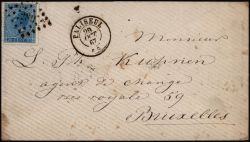 FALISOLLE
Monsieur
L. Ph. Kupnen
agent de change
rue royale 59
Bruxelles